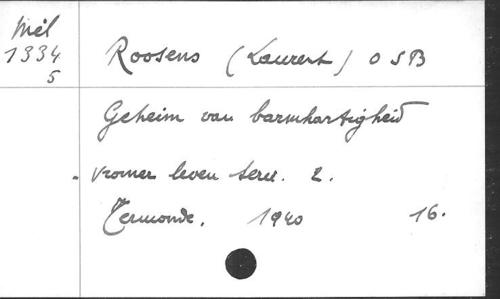 Mél
1334
5
Roosens (Laurent) O S B
Geheim van barmhartigheid
Vromer leven serie. 2.
Termonde. 1940 16.